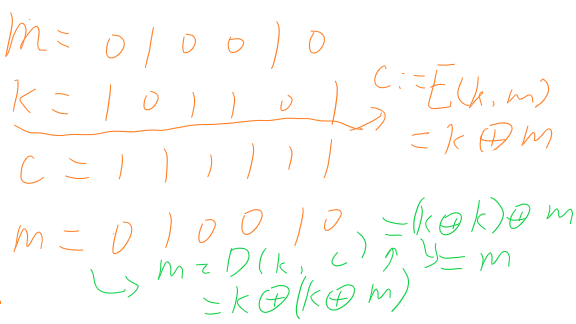 m = 0 1 0 0 1 0
k = 1 0 1 1 0 1
c := E(k, m)
= k ⊕ m
c = 1 1 1 1 1 1
m = 0 1 0 0 1 0
m = D(k, c)
= k ⊕ (k ⊕ m)
= (k ⊕ k) ⊕ m
= m